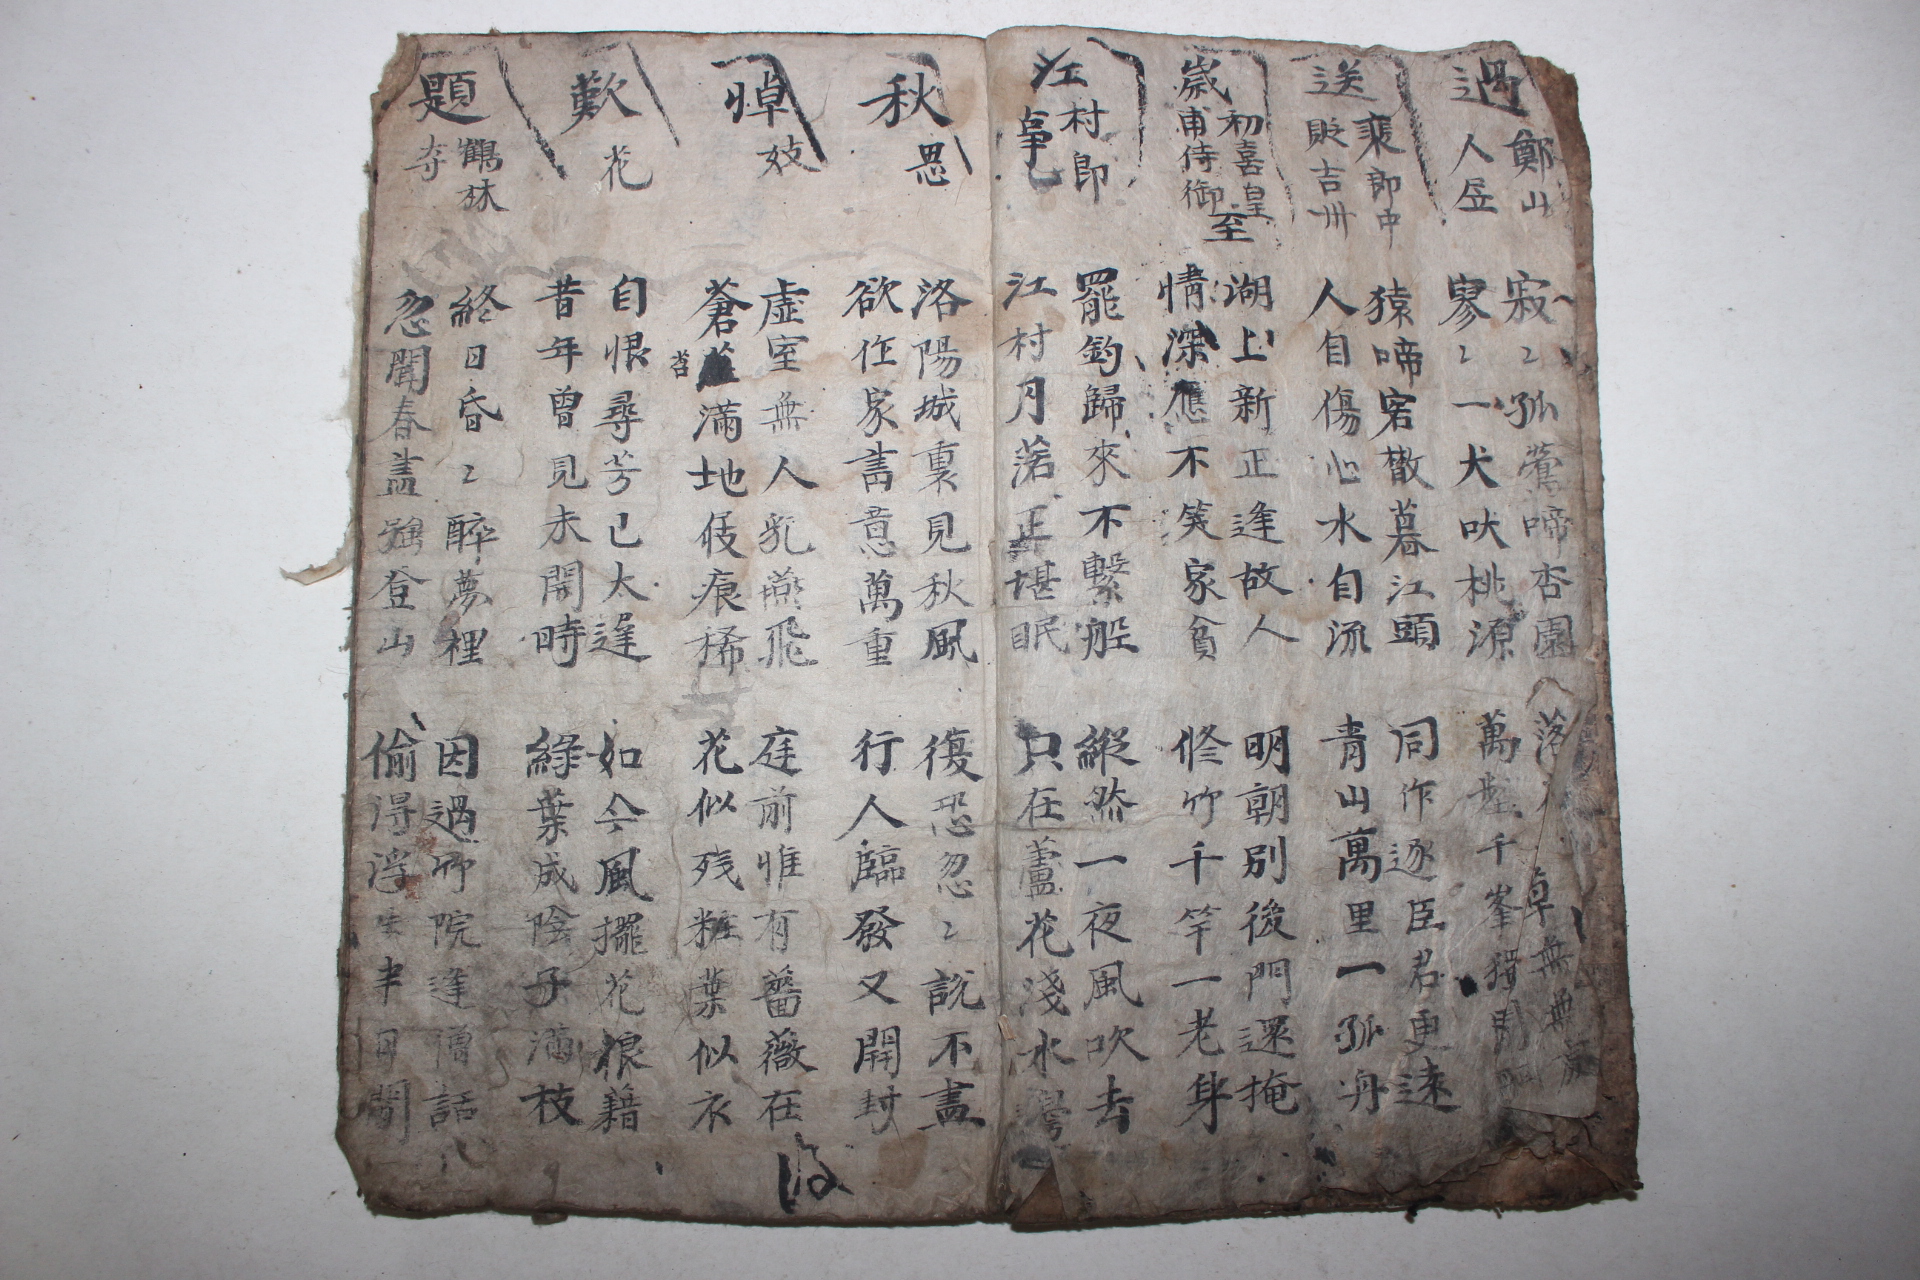 過鄭山
人居
寂〻孤鶯啼杏園
寥〻一犬吠桃源
落
無
萬壑千峯獨閉門
送裴郎中
貶吉州
猿啼客散暮江頭
人自傷心水自流
同作逐臣君更遠
青山萬里一孤舟
歲初喜皇
甫侍御至
湖上新正逢故人
情深應不笑家貧
明朝別後門還掩
修竹千竿一老身
江村即
事
罷釣歸來不繫船
江村月落正堪眠
縱然一夜風吹去
只在蘆花淺水
秋思
洛陽城裏見秋風
欲作家書意萬重
復恐忽〻說不盡
行人臨發又開封
悼妓
虛室無人乳燕飛
蒼苔滿地伎痕稀
庭前惟有薔薇在
花似残粧葉似衣
歎花
自恨尋芳已太遅
昔年曾見未開時
如今風擺花狼籍
綠葉成陰子滿枝
題鶴林
寺
終日昏〻醉夢裡
忽聞春盡强登山
因過竹院逢僧話
偷得浮生半日閑